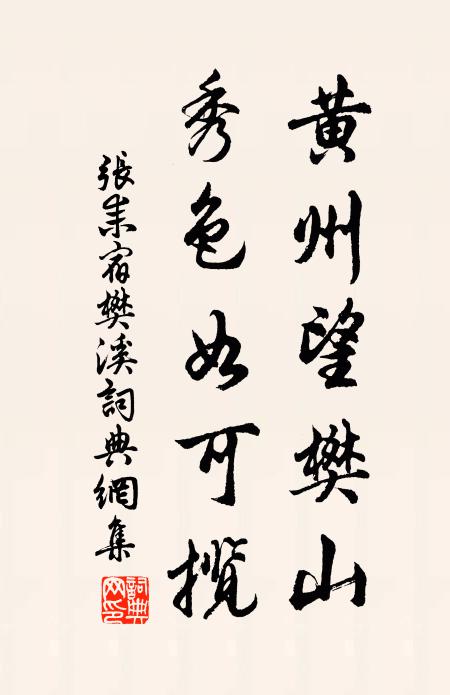 黄州望樊山
秀色如可揽
張耒宿樊溪詞典網集
詞典網印